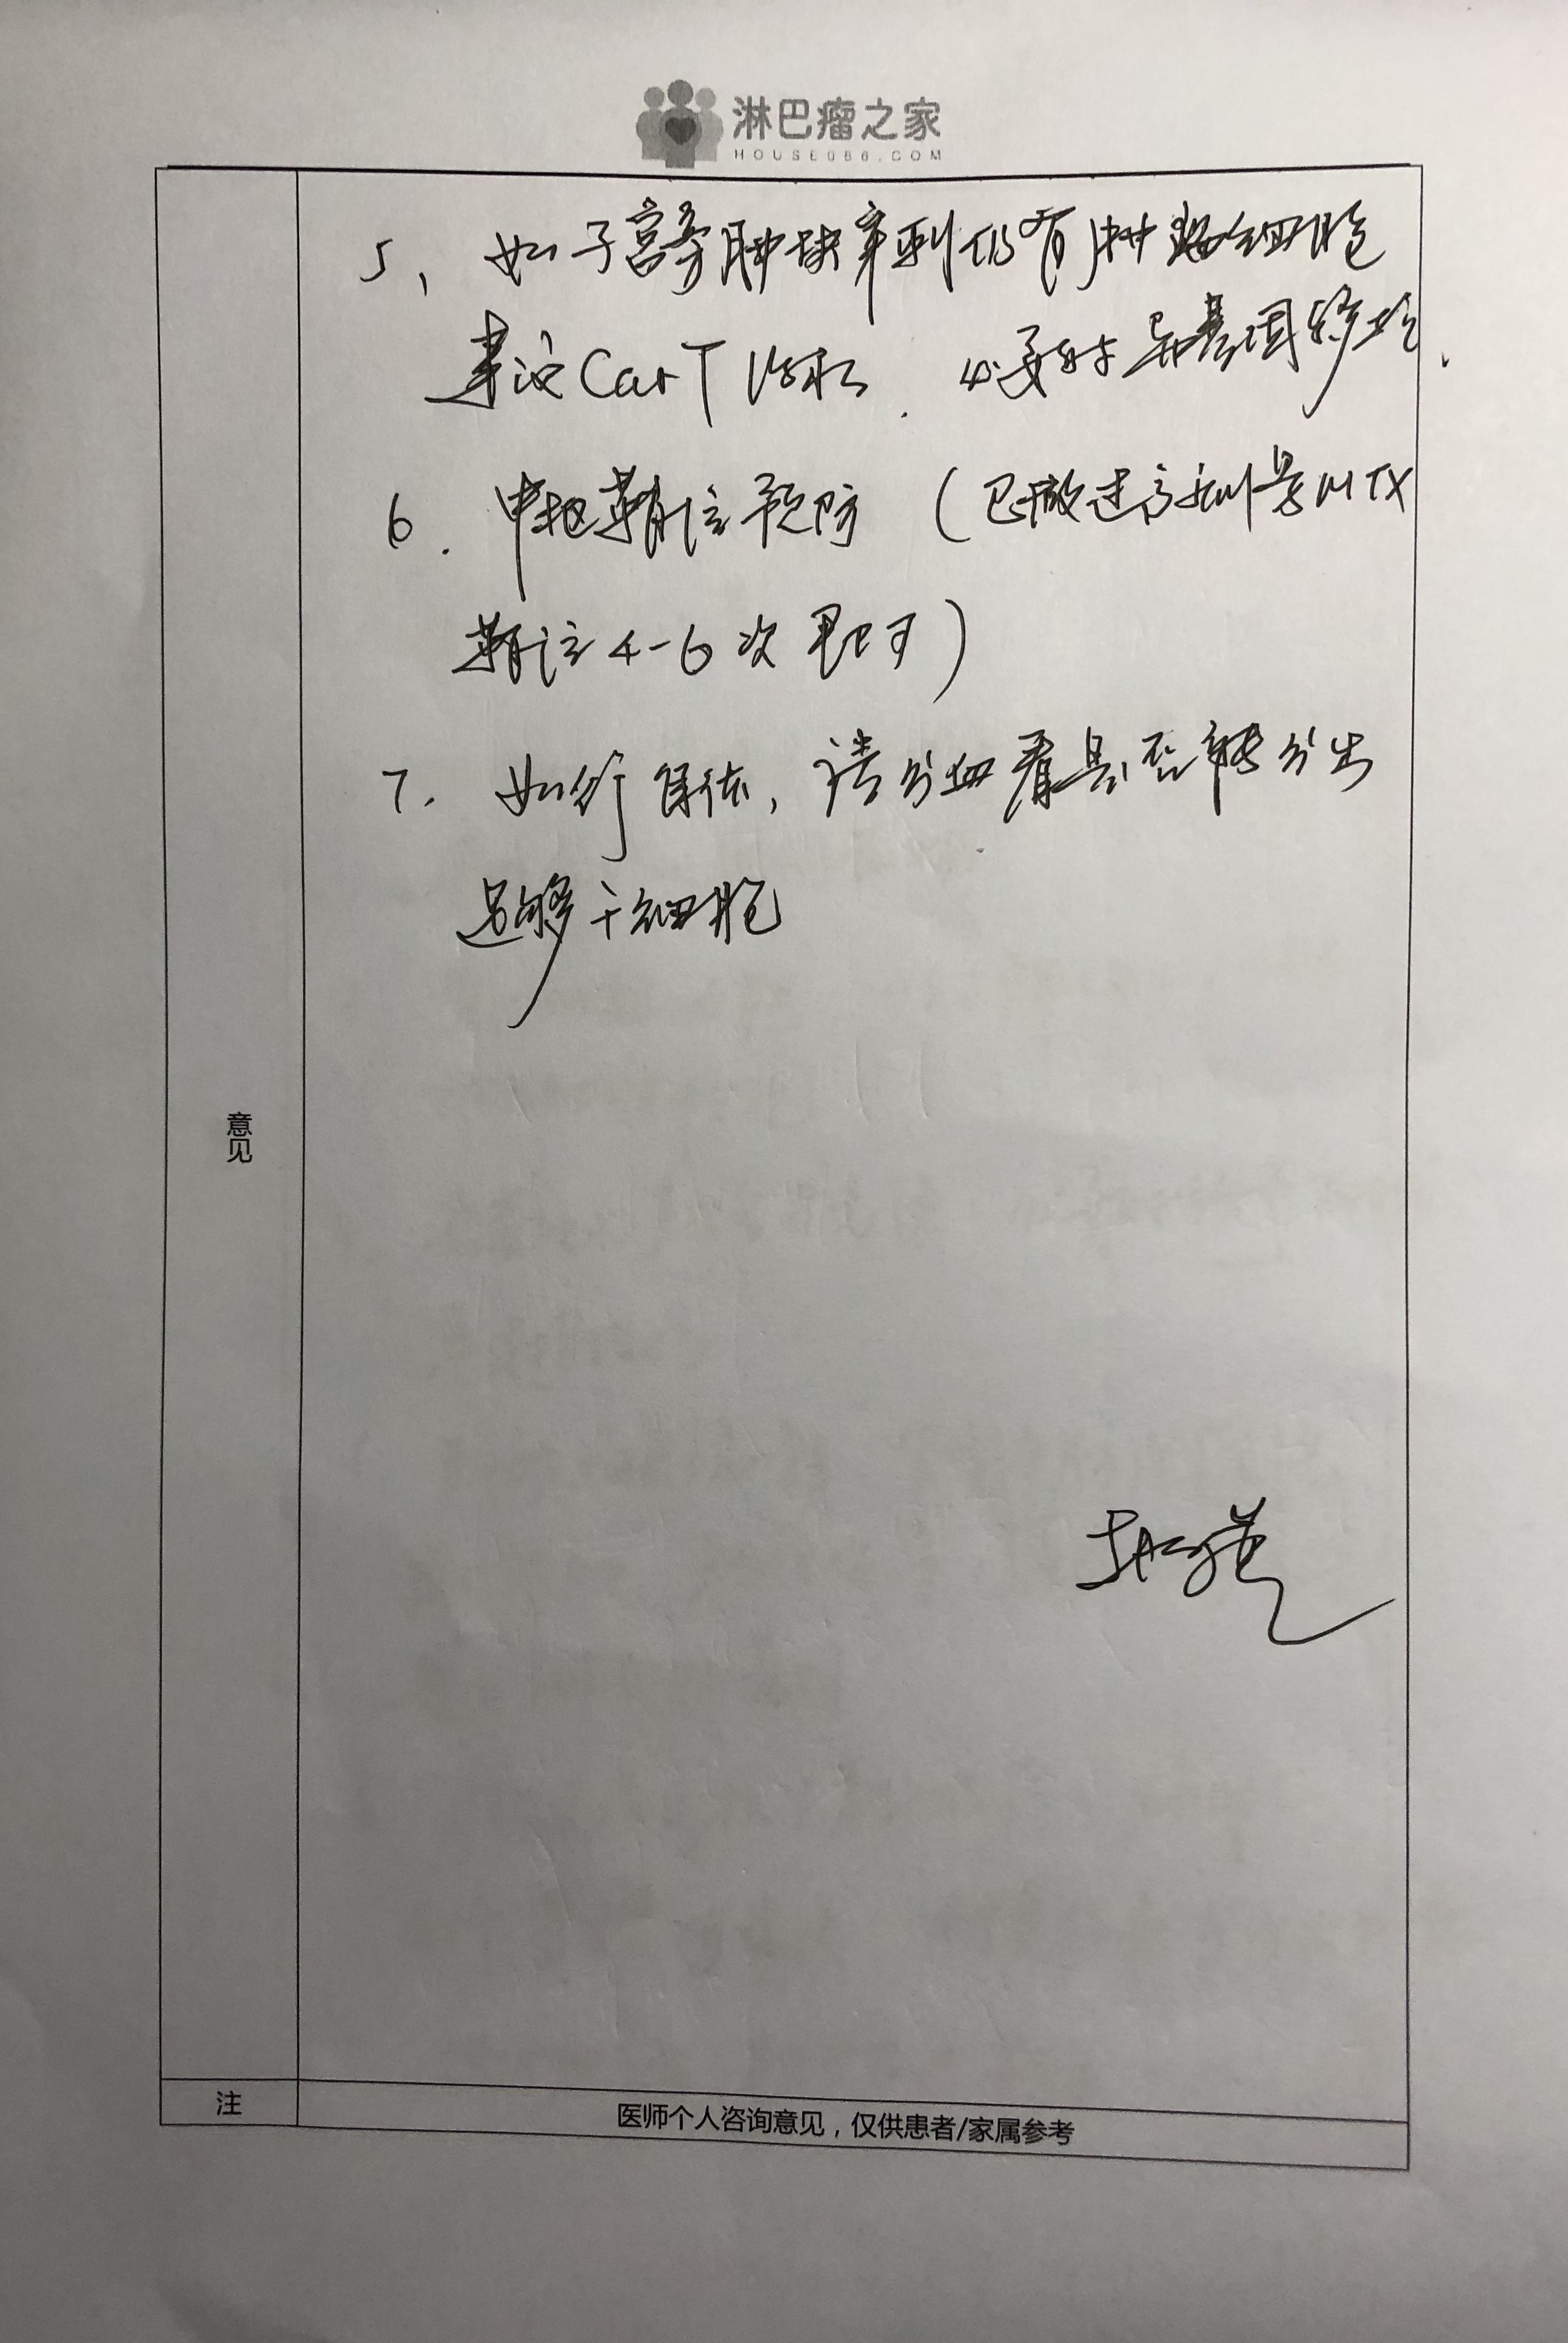 淋巴瘤之家
HOUSE086.COM
5、如子宫旁肿块穿刺仍有肿瘤细胞
建议CarT治疗.必要时异基因移植.
6.中枢鞘注预防(已做过高剂量MTX
鞘注4-6次即可)
7.如行自体,请分血看是否能分出
足够干细胞
意见
注
医师个人咨询意见,仅供患者/家属参考